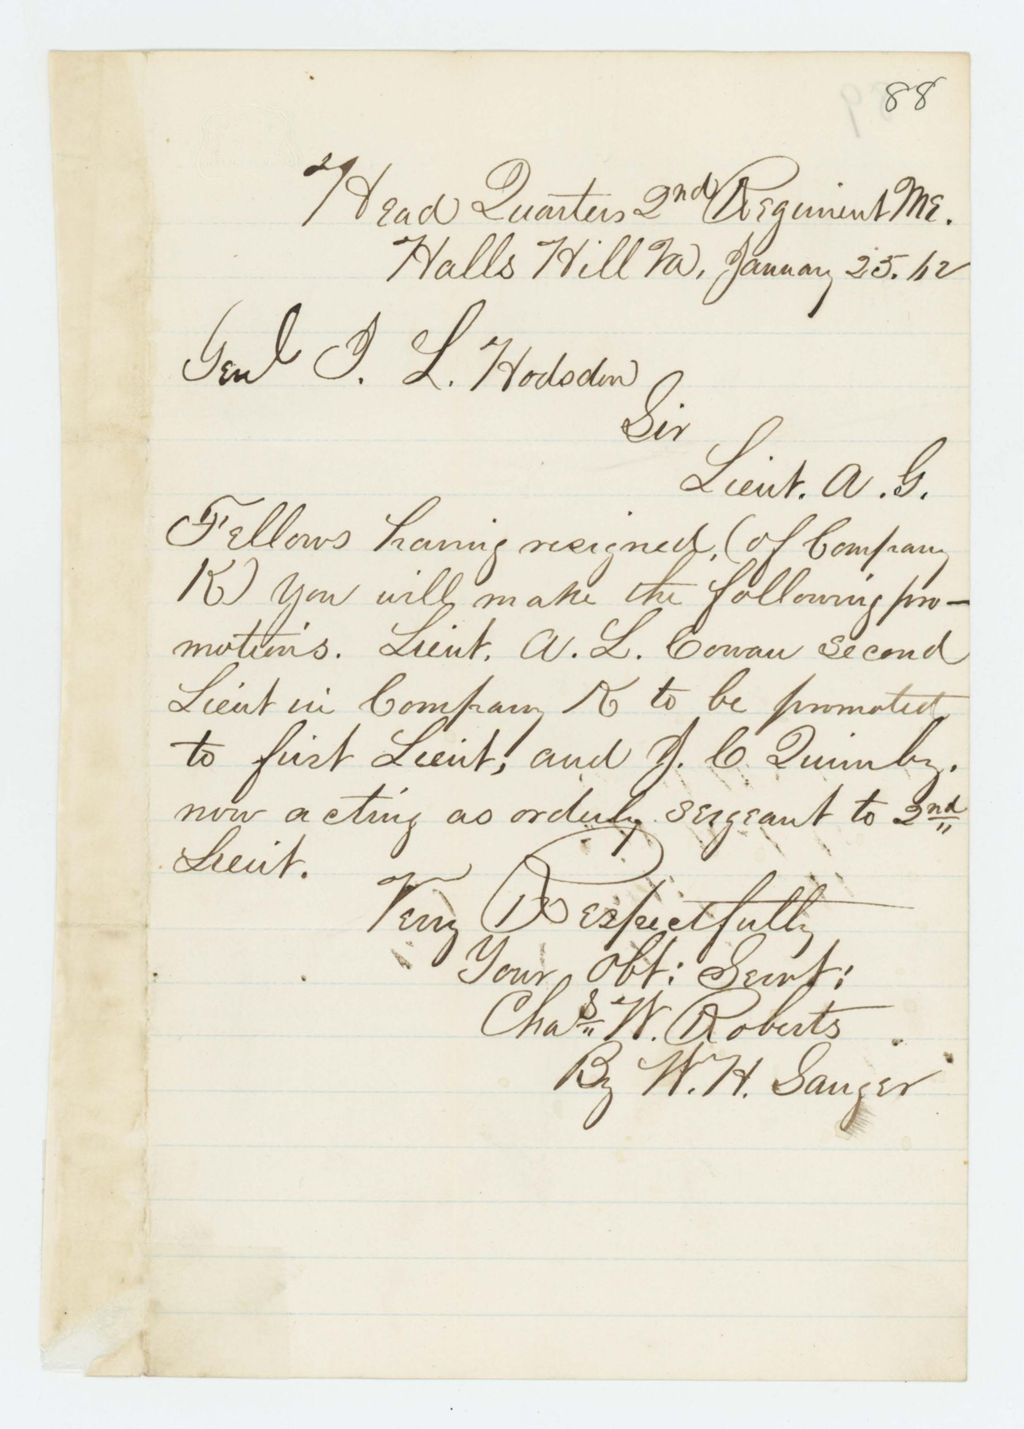 88
Head Quarters 2nd Regiment Me.
Halls Hill Va, January 25. 62
Genl J. L. Hodsdon
Sir
Lieut. A. G.
Fellows having resigned, (of Company
K) you will make the following pro-
motions. Lieut. A. L. Cowan second
Lieut in Company K to be promoted
to first Lieut, and J. C Quimby.
now acting as orderly sergeant to 2nd
Lieut.
Very Respectfully
Your Obt: Servt:
Chas W. Roberts
By W. H. Sanger